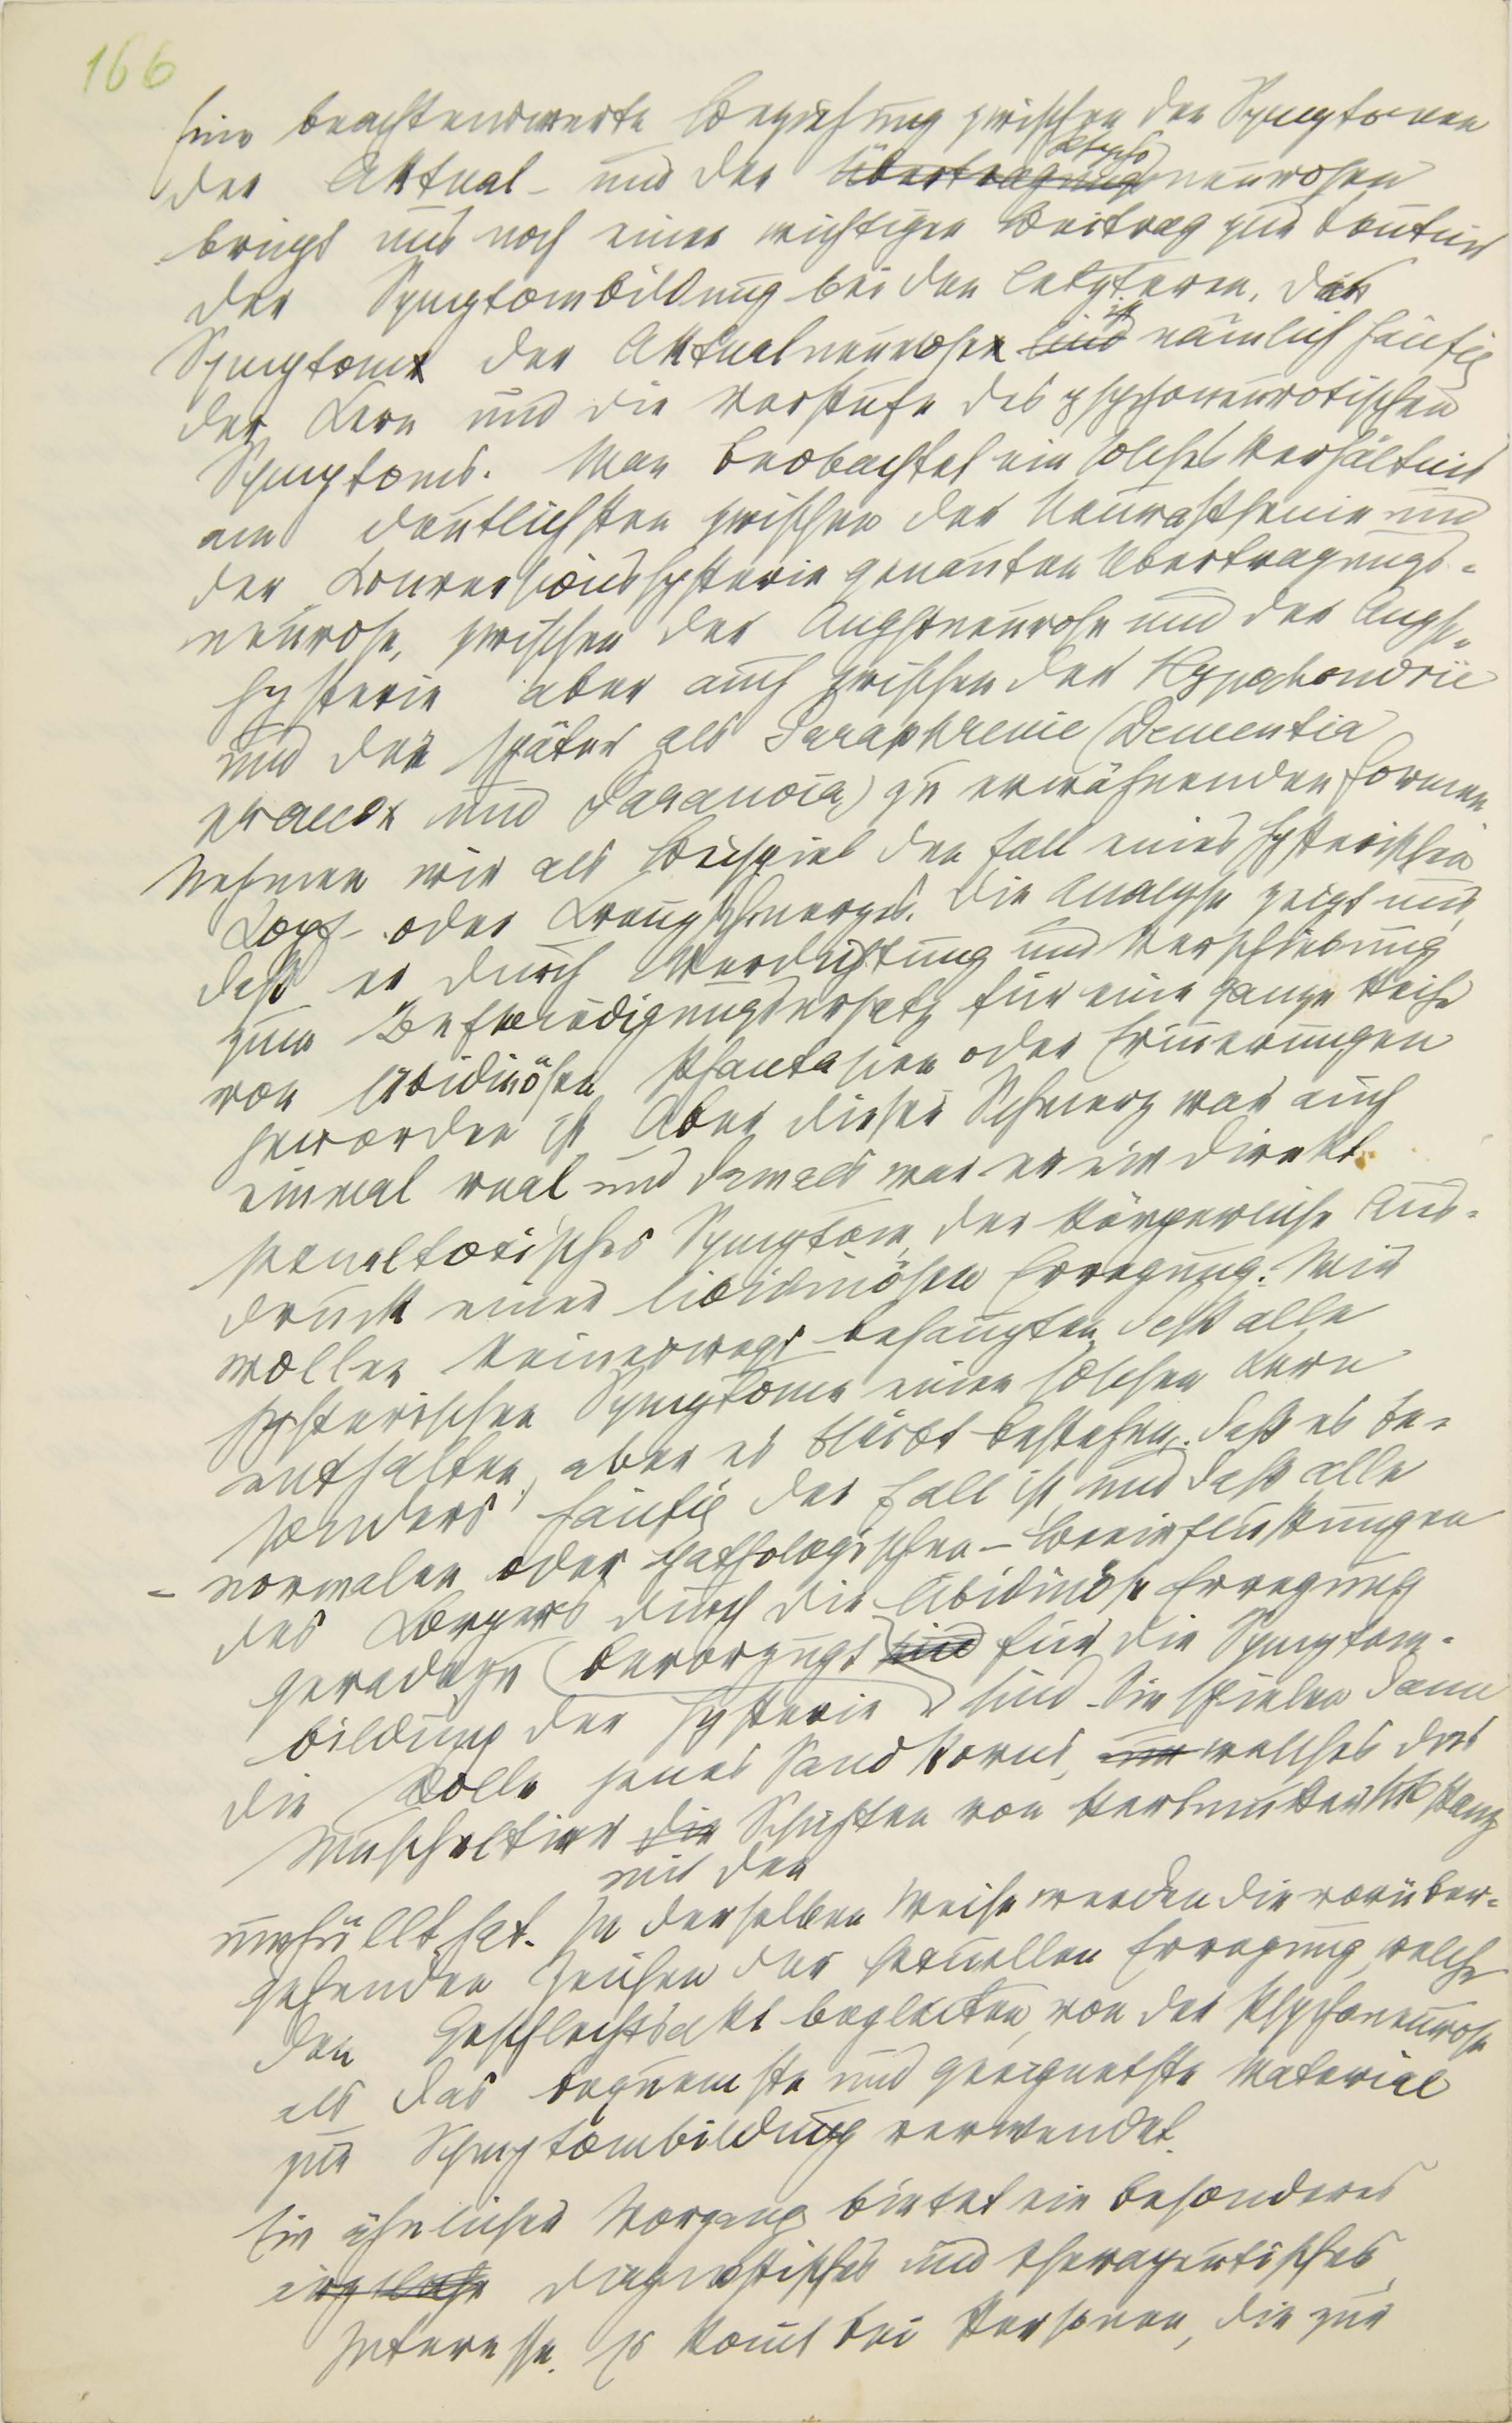 166
Eine beachtenswerte Beziehung zwischen den Symptomen
der Aktual- und der Übertragungs Psycho neurosen
bringt uns noch einen wichtigen Beitrag zur Kenntnis
der Symptombildung bei den letzteren. Das
Symptom der Aktualneurose sind ist nämlich häufig
der Kern und die Vorstufe des psychoneurotischen
Symptoms. Man beobachtet ein solches Verhältnis
am deutlichsten zwischen der Neurasthenie und
der Konversionshysterie genanten Übertragungs-
neurose, zwischen der Angstneurose und der Angst-
hysterie aber auch zwischen der Hypochondrie
und den später als Paraphrenie (Dementia
praecox und Paranoia) zu erwähnenden Formen
Nehmen wir als Beispiel den Fall eines hysterischen
Kopf- oder Kreuzschmerzes. Die Analyse zeigt uns,
daß er durch Verdichtung und Verschiebung
zum Befriedigungsersatz für eine ganze Reihe
von libidinösen Phantasien oder Erinnerungen
geworden ist Aber dieser Schmerz war auch
einmal real und damals war er ein direkt
sexualtoxisches Symptom, der körperliche Aus-
druck einer libidinösen Erregung. Wir
wollen keineswegs behaupten, daß alle
hysterischen Symptome einen solchen Kern
enthalten, aber es bleibt bestehen, daß es be-
sonders häufig der Fall ist und daß alle
– normalen oder pathologischen – Beeinflussungen
des Körpers durch die libidinöse Erregung
geradezu bevorzugt sind für die Symptom-
bildung der Hysterie sind Sie spielen dann
die Rolle jenes Sandkorns, welches das
Muscheltier die Schichten von Perlmuttersubstanz
mit den
umhüllt hat. In derselben Weise werden die vorüber-
gehenden Zeichen der sexuellen Erregung, welche
den Geschlechtsakt begleiten, von der Psychoneurose
als das bequemste und geeignetste Material
zur Symptombildung verwendet.
Ein ähnlicher Vorgang bietet ein besonderes
diagnostisches und therapeutisches
Interesse. Es komt bei Personen, die zur